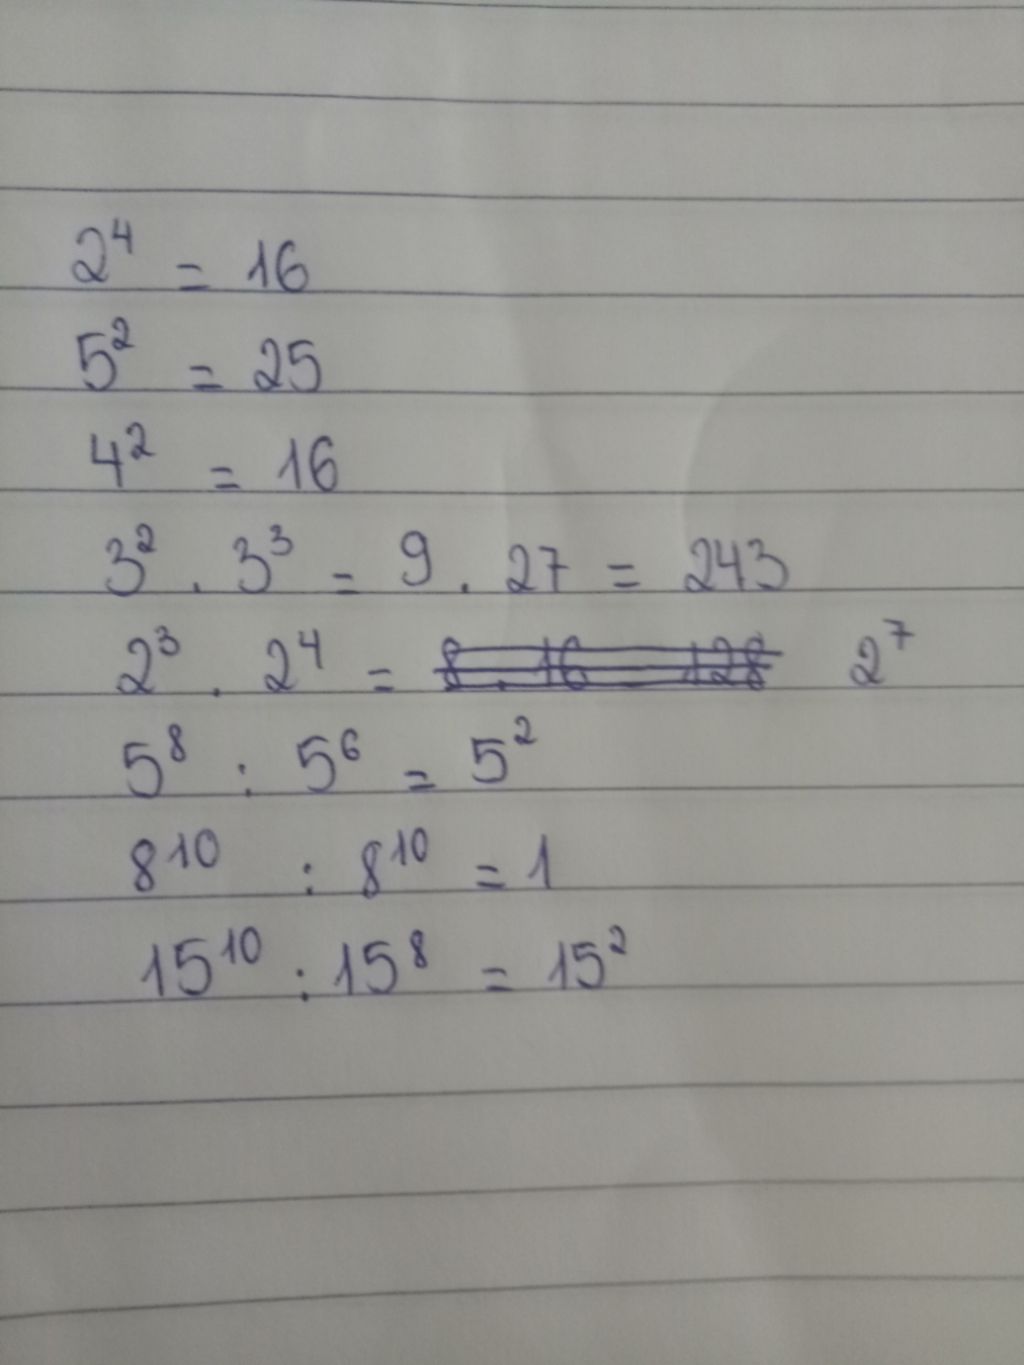 2⁴ = 16
5² = 25
4² = 16
3² . 3³ = 9 . 27 = 243
2³ . 2⁴ = 8 . 16 = 128 2⁷
5⁸ : 5⁶ = 5²
8¹⁰ : 8¹⁰ = 1
15¹⁰ : 15⁸ = 15²